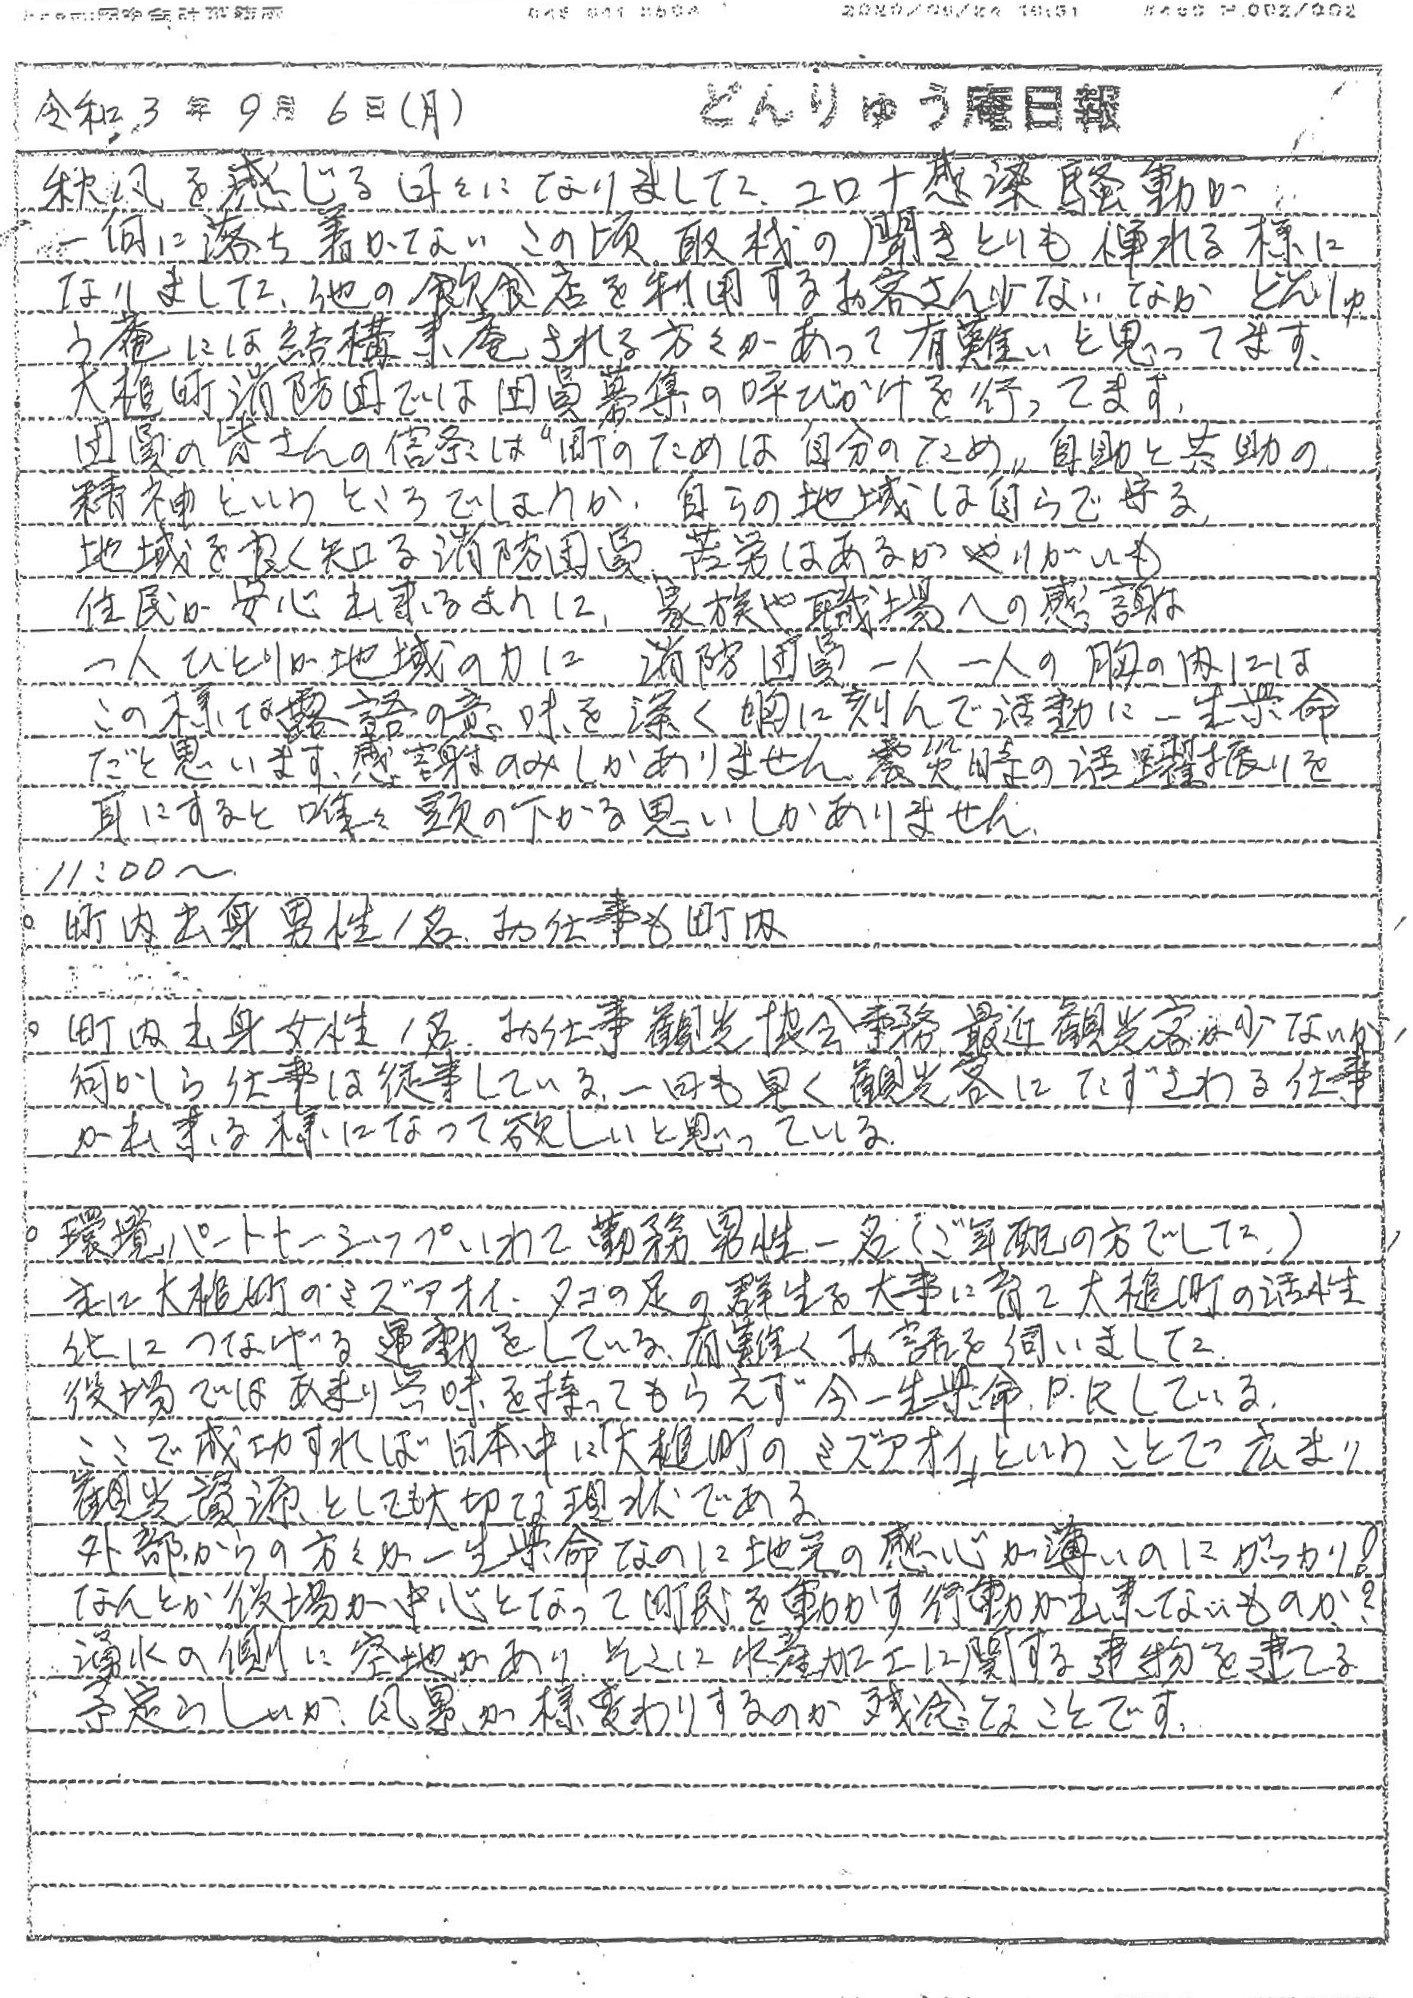 2020/09/24 16:51 P.002/002
令和3年9月6日(月) どんりゅう庵日報
秋風を感じる日々になりました、コロナ感染騒動が
一向に落ち着かないこの頃、取材の聞きとりも憚れる様に
なりました、他の飲食店を利用するお客さん少ないなか どんりゅ
う庵には結構来庵される方々があって有難いと思ってます、
大槌町消防団では団員募集の呼びかけを行ってます、
団員の皆さんの信条は“町のためは自分のため〟自助と共助の
精神というところでしょうか、自らの地域は自らで守る、
地域を良く知る消防団員、苦労はあるがやりがいも
住民が安心出来るように、家族や職場への感謝は
一人ひとりが地域の力に 消防団員一人一人の胸の内には
この様な 語の意味を深く胸に刻んで活動に一生懸命
だと思います、感謝のみしかありません、震災時の活躍振りを
耳にすると唯々頭の下がる思いしかありません、
11:00〜
○ 町内出身男性1名、お仕事も町内
○ 町内出身女性1名、お仕事観光協会事務、最近観光客が少ないが、
何かしら仕事は従事している、一日も早く観光客にたずさわる仕事
が出来る様になって欲しいと思っている、
○ 環境パートナーシップいわて勤務男性一名(ご年配の方でした、)
主に大槌町のミズアオイ、タコの足の群生を大事に育て大槌町の活性
化につなげる運動をしている、有難くお話を伺いました、
役場ではあまり興味を持ってもらえず今一生懸命、P.Rしている、
ここで成功すれば日本中に「大槌町のミズアオイ」ということで広まり
観光資源としても大切な現状である
外部からの方々が一生懸命なのに地元の感心が薄いのにがっかり!
なんとか役場が中心となって町民を動かす行動が出来ないものか?
湧水の側に空地があり、そこに水産加工に関する建物を建てる
予定らしいが、風景が様変わりするのが残念なことです、